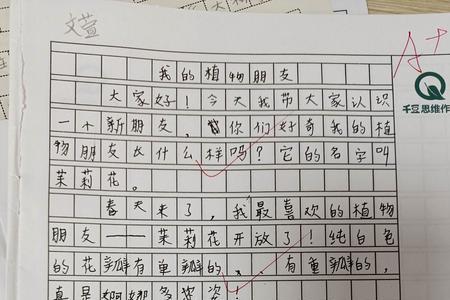 文萱
A+
我的植物朋友
千豆思维作
大家好！今天我带大家认识
一个新朋友，你们好奇我的植
物朋友长什么样吗？它的名字叫
茉莉花。
春天来了，我最喜欢的植物
朋友——茉莉花开放了！纯白色
的花瓣有单瓣的、有重瓣的，
真是婀娜多姿姿！